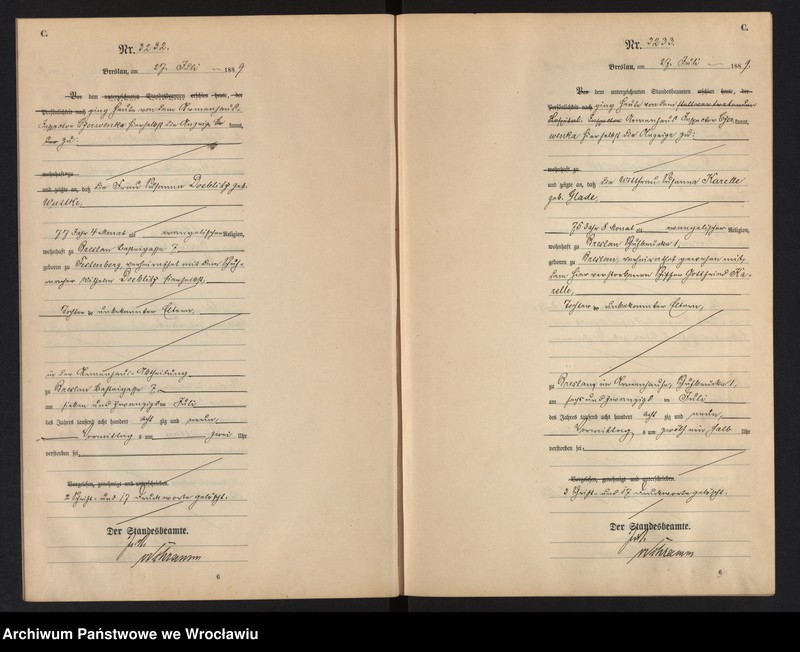 C.
Nr. 3232.
Breslau, am 27. Juli 1889
Vor dem unterzeichneten Standesbeamten erschien heute, der
Persönlichkeit nach ging heute von dem Armenhaus-
Inspector hierselbst die Anzeige kannt,
zu:
wohnhaft zu
und zeigte an, daß die Frau Susanna Doeblitz geb.
Wuttke,
77 Jahr 4 Monat alt evangelischer Religion,
wohnhaft zu Breslau Basteigasse 7.
geboren zu Festenberg, verheirathet mit dem Schuh-
macher Wilhelm Doeblitz hierselbst,
Tochter unbekannter Eltern,
in der Armenhaus-Abtheilung
zu Breslau Basteigasse 7.
am sieben und zwanzigsten Juli
des Jahres tausend acht hundert acht zig und neun,
Vormittag s um zwei Uhr
verstorben sei.
Vorgelesen, genehmigt und unterschrieben
2 Schrift- und 17 Druckworte gelöscht.
Der Standesbeamte.
6
C.
Nr. 3233.
Breslau, am 27. Juli 1889.
Vor dem unterzeichneten Standesbeamten erschien heute, der
Persönlichkeit nach ging heute von dem
Hospital- Inspector Armenhaus Inspector kannt,
hierselbst die Anzeige zu:
wohnhaft zu
und zeigte an, daß die Wittfrau Susanna Karelle
geb. Glade,
75 Jahr 8 Monat alt evangelischer Religion,
wohnhaft zu Breslau Schuhbrücke 1,
geboren zu Breslau, verheirathet gewesen mit
dem hier verstorbenen Schiffer Gottfried Ka-
relle,
Tochter unbekannter Eltern,
zu Breslau, im Armenhause, Schuhbrücke 1,
am sechs und zwanzigst en Juli
des Jahres tausend acht hundert acht zig und neun,
Vormittag s um zwölf ein halb Uhr
verstorben sei.
Vorgelesen, genehmigt und unterschrieben
3 Schrift- und 17 Druckworte gelöscht.
Der Standesbeamte.
6
Archiwum Państwowe we Wrocławiu